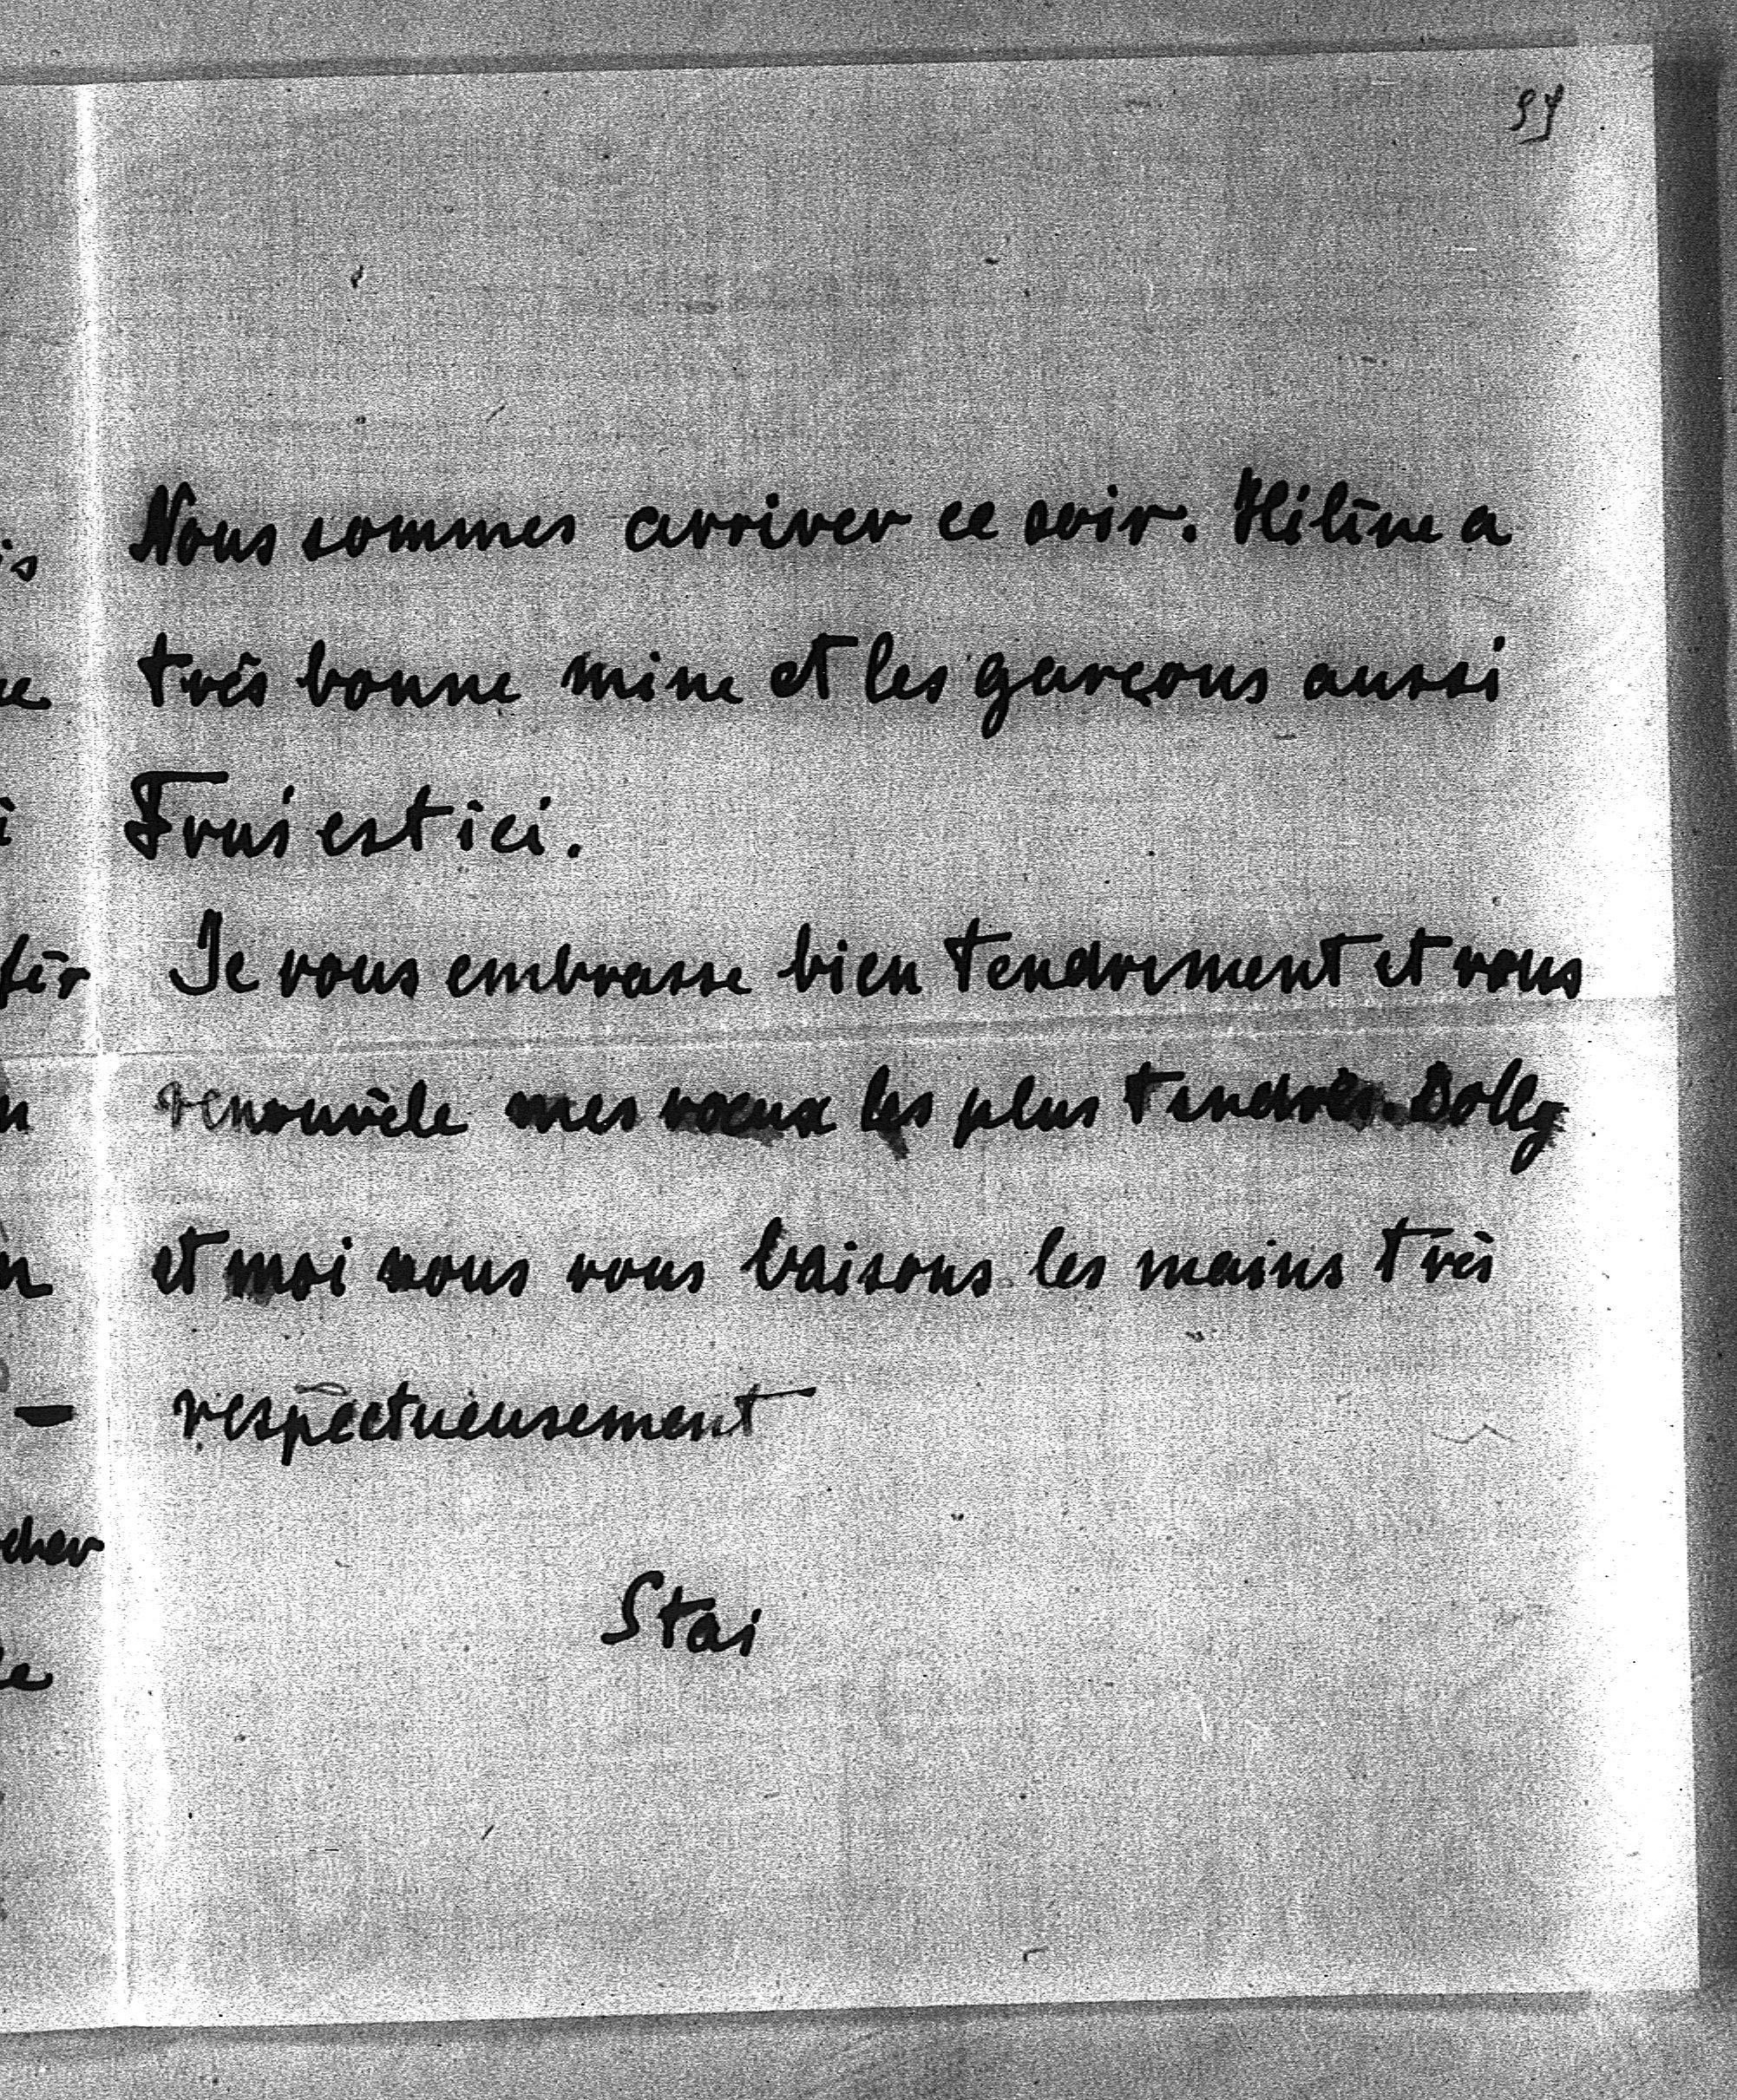 Nous sommes arriver ce soir. Hélène a
très bonne mine et les garçons aussi
est ici.
Je vous embrasse bien tendrement et vous
renouvèle mes vœux les plus tendres. Dolly
et moi nous vous baisons les mains très
respectueusement
Stai